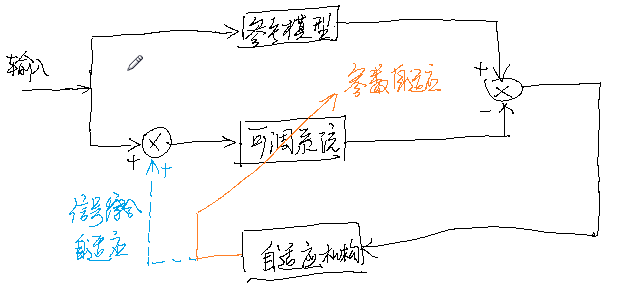 参考模型
输入
+
参数自适应
-
可调系统
+
+
信号综合
自适应
自适应机构